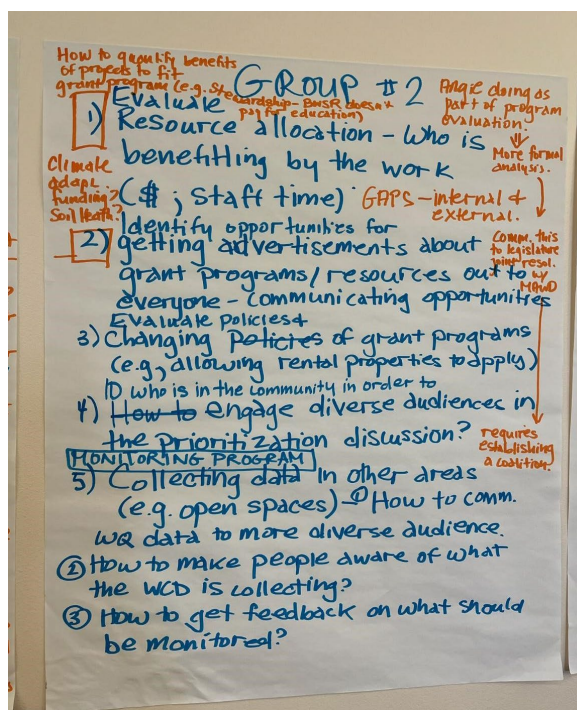 How to quantify benefits
of projects to fit
grant program (e.g. Stewardship - BWSR doesn't
pay for education)
GROUP #2
Angie doing as
part of program
evaluation.
⇓
More formal
analysis.
Evaluate
1) Resource allocation - Who is
benefitting by the work
($ ; Staff time)
GAPS - internal &
external.
Climate
adapt.
funding?
Soil Health?
Identify opportunities for
2) getting advertisements about
grant programs/resources out to
everyone - communicating opportunities
Comm. this
to legislature
joint resol.
w/
MAWD
Evaluate policies &
3) Changing Policies of grant programs
(e.g., allowing rental properties to apply)
ID who is in the community in order to
4) How to engage diverse audiences in
the prioritization discussion?
requires
establishing
a coalition.
MONITORING PROGRAM
5) Collecting data in other areas
(e.g. open spaces) - ① How to comm.
WQ data to more diverse audience.
② How to make people aware of what
the WCD is collecting?
③ How to get feedback on what should
be monitored?